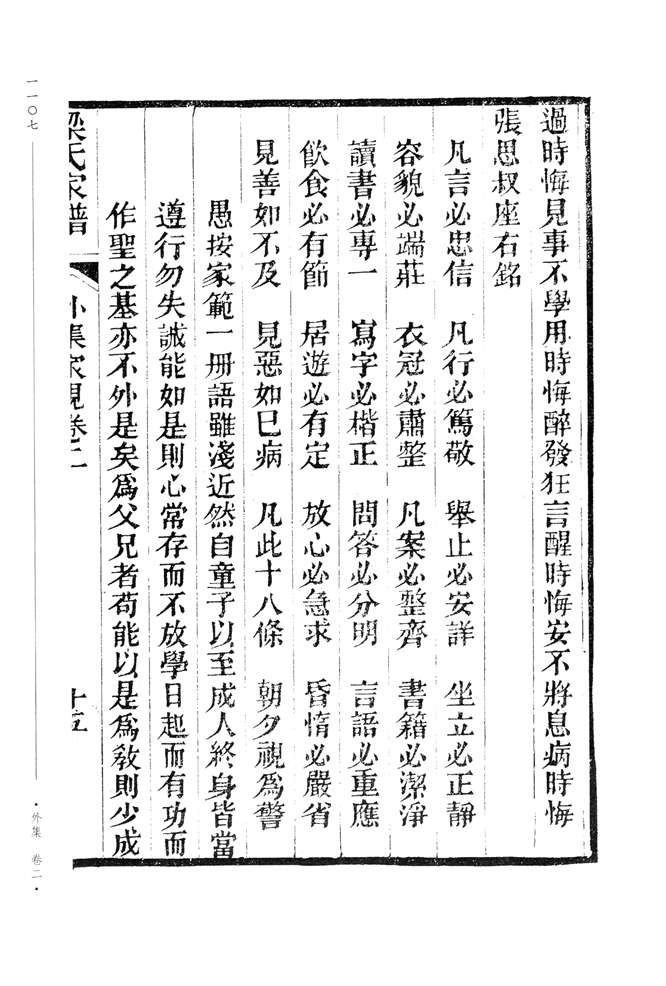 過時悔見事不學用時悔醉發狂言醒時悔安不將息病時悔
張思叔座右銘
凡言必忠信　凡行必篤敬　舉止必安詳　坐立必正靜
容貌必端莊　衣冠必肅整　凡案必整齊　書籍必潔淨
讀書必專一　寫字必楷正　問答必分明　言語必重應
飲食必有節　居遊必有定　放心必急求　昏惰必嚴省
見善如不及　見惡如巳病　凡此十八條　朝夕視為警
愚按家範一冊語雖淺近然自童子以至成人終身皆當
遵行勿失誠能如是則心常存而不放學日起而有功而
作聖之基亦不外是矣為父兄者苟能以是為教則少成
梁氏家譜　外集家規卷二　十五
一一〇七
·外集　卷二·